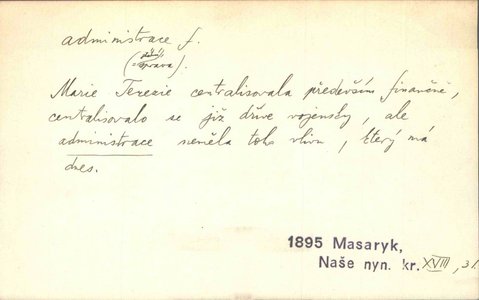 administrace f.
(= státní
správa).
Marie Terezie centralisovala především finančně,
centralisovalo se již dříve vojensky, ale
administrace neměla toho vlivu, který má
dnes.
1895 Masaryk,
Naše nyn. kr. XVIII, 31